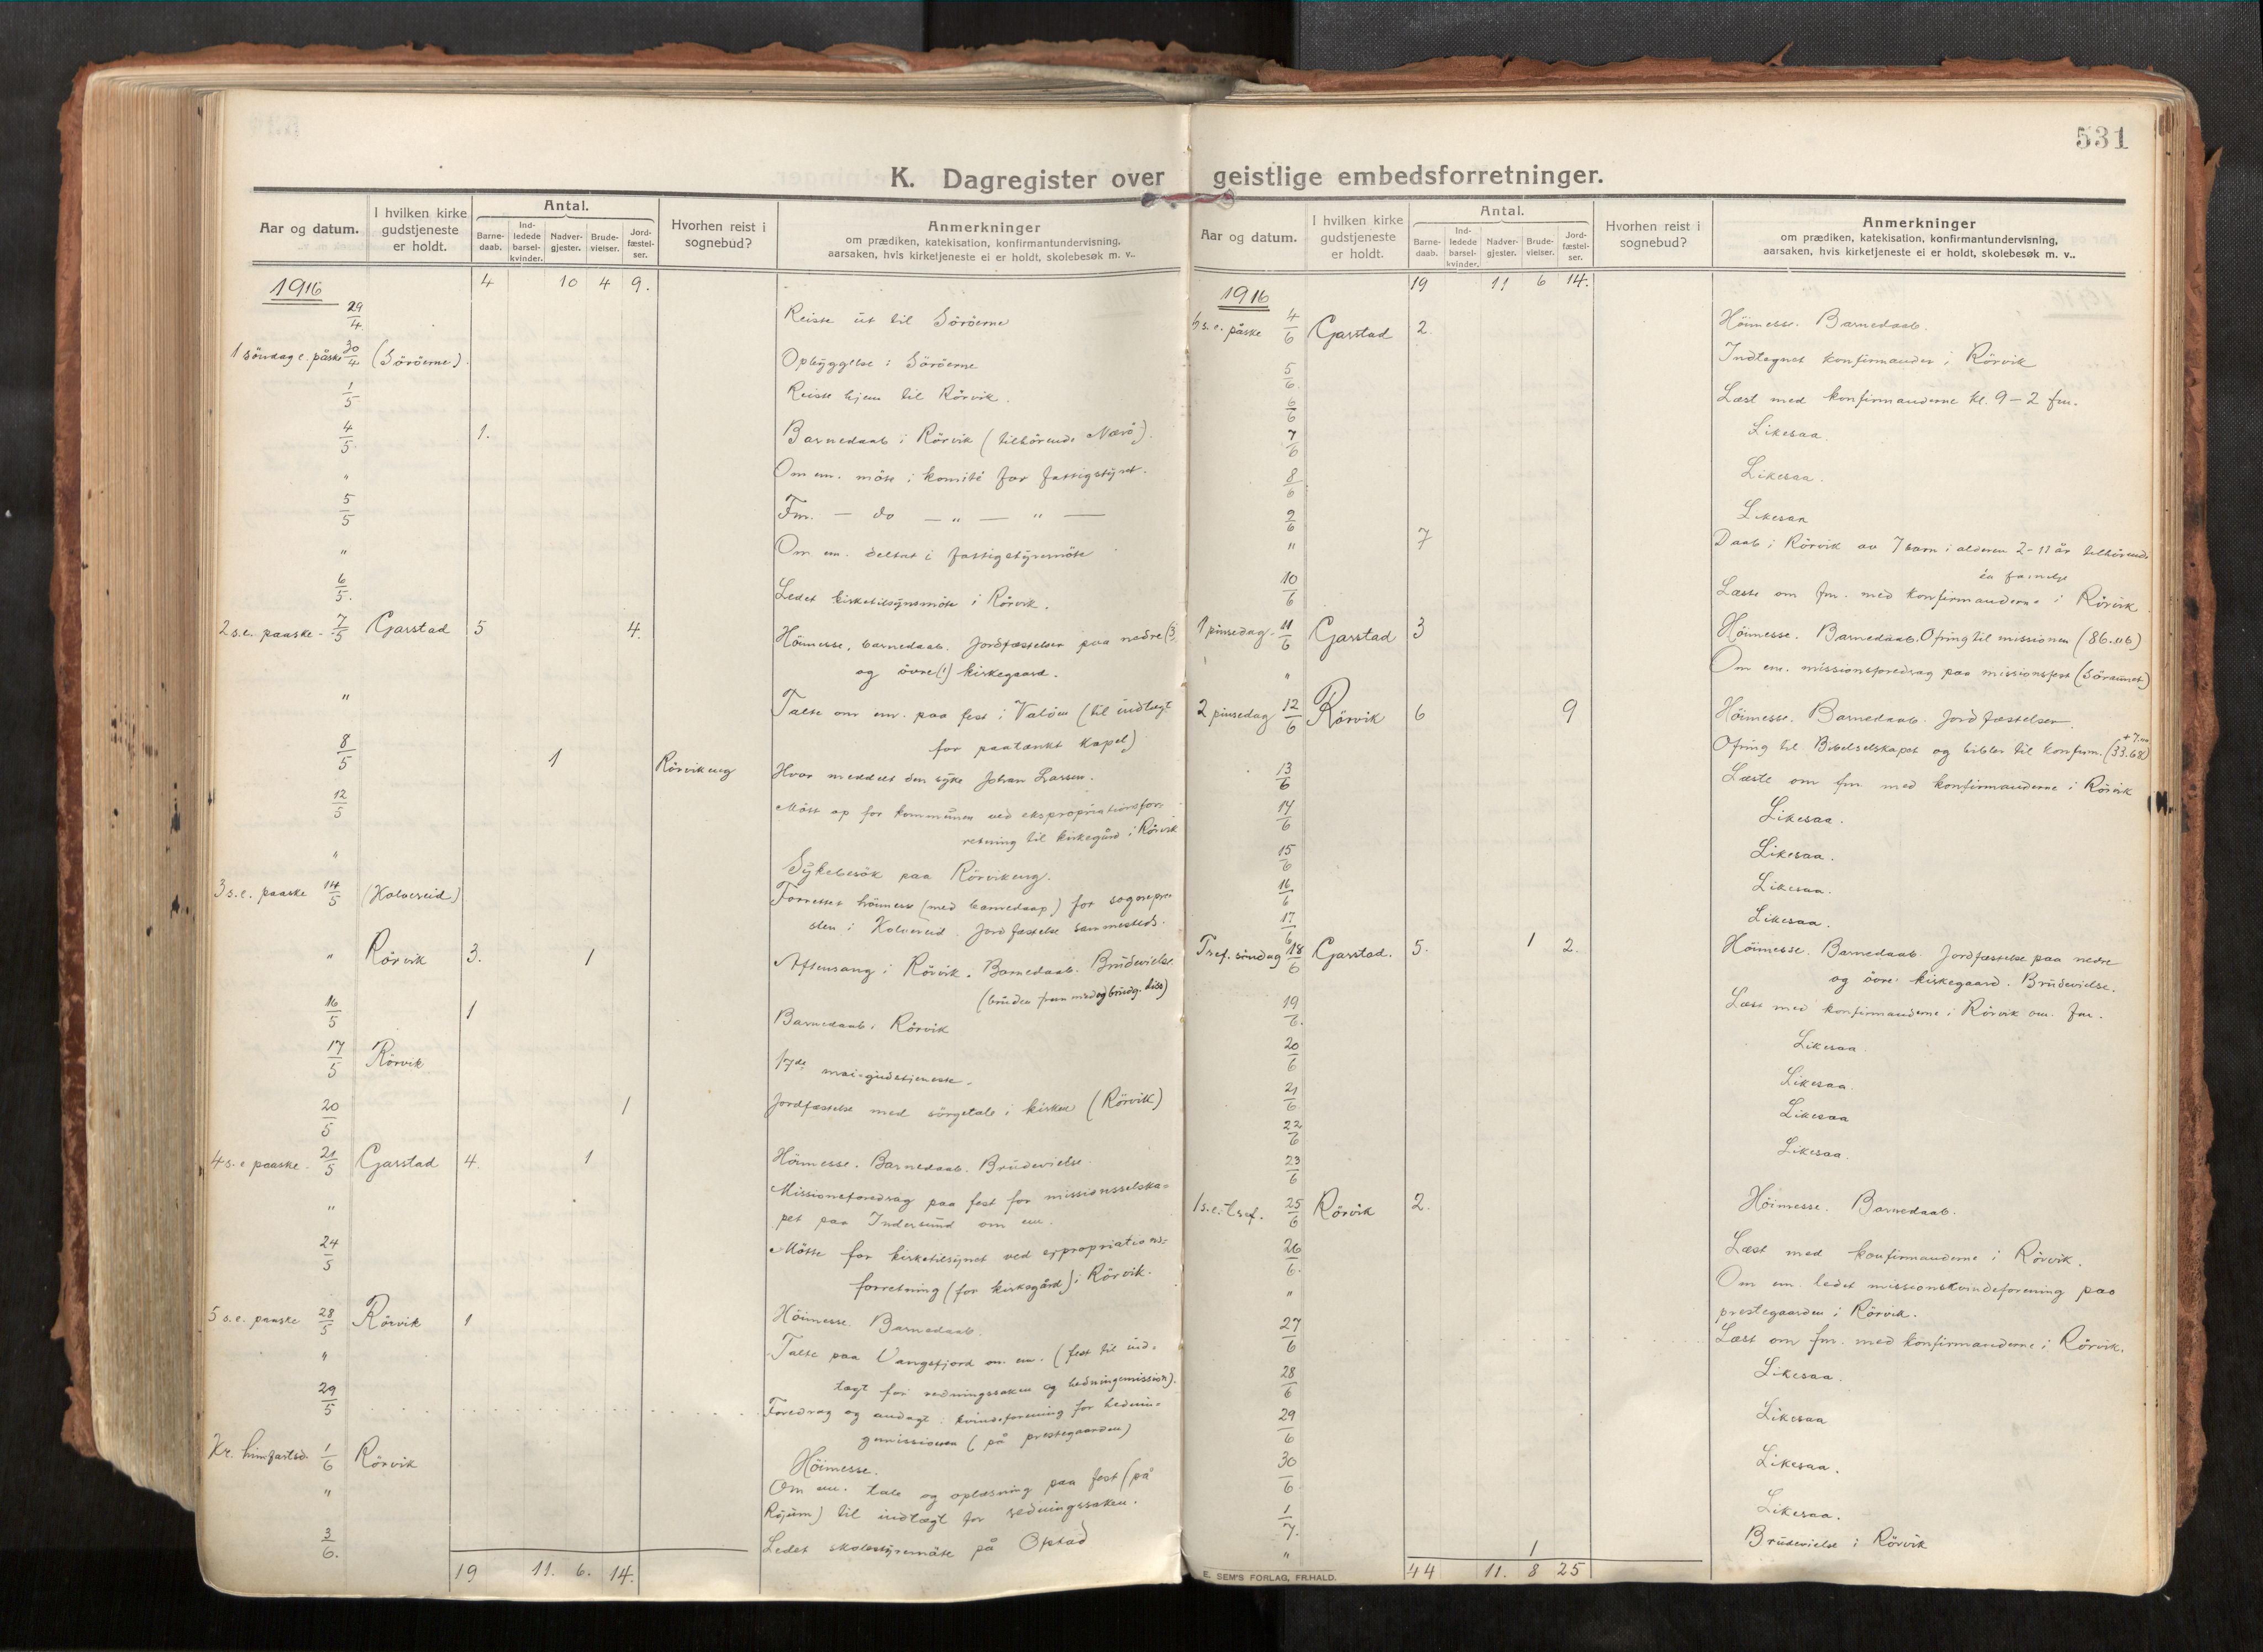 531
K. Dagregister over geistlige embedsforretninger.
Aar og datum.
I hvilken kirke gudstjeneste er holdt.
Antal.
Barne-daab.
Ind-ledede barsel-kvinder.
Nadver-gjester.
Brude-vielser.
Jord-fæstel-ser.
Hvorhen reist i sognebud?
Anmerkninger
om prædiken, katekisation, konfirmantundervisning,
aarsaken, hvis kirketjeneste ei er holdt, skolebesøk m. v..
1916 4 10 4 9.
29/4. Reiste ut til Söröerne
1 söndag e. påske 30/4 (Söröerne). Opbyggelse i Söröerne
1/5 Reiste hjem til Rörvik.
4/5 1. Barnedaab i Rörvik (tilhörende Nærö).
" Om em. möte i komité for fattigstyret.
5/5 Fm. — do — " — " —
" Om em. deltat i fattigstyremöte
6/5. Ledet kirketilsynsmöte i Rörvik.
2 s.e. paaske - 7/5 Garstad 5 4. Höimesse, barnedaab. Jordfæstelser paa nedre (3)
og övre (1) kirkegaard.
" Talte om em. paa fest i Valöen (til indtægt
for paatænkt kapel)
8/5 1 Rörvikeng Hvor meddelt den syke Johan Larsen.
12/5 Mött op for kommunen ved ekspropriationsfor-
retning til kirkegård i Rörvik
" Sykebesök paa Rörvikeng.
3 s.e. paaske 14/5 (Kolvereid) Forrettet höimesse (med barnedaap) for sognepre-
sten i Kolvereid. Jordfæstelse sammesteds.
" Rörvik 3. 1 Aftensang i Rörvik. Barnedaab. Brudevielse
(bruden frum med og brudg. diss)
16/5 1 Barnedaab i Rörvik
17/5 Rörvik 17de mai-gudstjeneste.
20/5 1 Jordfæstelse med sörgetale i kirken (Rörvik)
4 s.e paaske. 21/5 Garstad 4. 1 Höimesse. Barnedaab. Brudevielse.
" Missionsforedrag paa fest for missionsselska=
pet paa Indersund om em.
24/5 Mötte for kirketilsynet ved expropriations-
forretning (for kirkegård) i Rörvik.
5 s.e. paaske 28/5 Rörvik 1 Höimesse. Barnedaab.
" Talte paa Vangsfjord om em. (fest til ind-
tægt for redningssaken og hedningemission).
29/5 Foredrag og andagt i kvindeforening for hednin-
gemissionen (på prestegaarden)
Kr. himfartsd. 1/6 Rörvik Höimesse.
" Om em. tale og oplæsning paa fest (på
Röjum) til indtægt for redningssaken.
3/6. Ledet skolestyremöte på Opstad
19 11. 6. 14.
Aar og datum.
I hvilken kirke gudstjeneste er holdt.
Antal.
Barne-daab.
Ind-ledede barsel-kvinder.
Nadver-gjester.
Brude-vielser.
Jord-fæstel-ser.
Hvorhen reist i sognebud?
Anmerkninger
om prædiken, katekisation, konfirmantundervisning,
aarsaken, hvis kirketjeneste ei er holdt, skolebesøk m. v..
1916 19 11 6 14.
6 s.e. påske 4/6 Garstad 2. Höimesse. Barnedaab.
5/6. Indtegnet konfirmander i Rörvik
6/6 Læst med konfirmanderne kl. 9–2 fm.
7/6 Likesaa.
8/6 Likesaa.
9/6 Likesaa
" 7 Daab i Rörvik av 7 barn i alderen 2–11 år tilhörende
én familje
10/6 Læste om fm. med konfirmanderne i Rörvik
1 pinsedag - 11/6 Garstad 3 Höimesse. Barnedaab. Ofring til missionen (86.06)
" Om em. missionsforedrag paa missionsfest (Söraunet)
2 pinsedag 12/6 Rörvik 6 9 Höimesse. Barnedaab. Jordfæstelser.
Ofring til Bibelselskapet og bibler til konfirm. (33.68) + 7.00
13/6 Læste om fm. med konfirmanderne i Rörvik
14/6 Likesaa.
15/6 Likesaa.
16/6 Likesaa.
17/6 Likesaa.
Tref. söndag 18/6 Garstad. 5. 1 2. Höimesse. Barnedaab. Jordfæstelse paa nedre
og övre kirkegaard. Brudevielse.
19/6. Læst med konfirmanderne i Rörvik om fm.
20/6 Likesaa
21/6 Likesaa.
22/6 Likesaa
23/6 Likesaa.
1 s.e. tref. 25/6 Rörvik 2. Höimesse. Barnedaab.
26/6. Læst med konfirmanderne i Rörvik.
" Om em. ledet missionskvindeforening paa
prestegaarden i Rörvik.
27/6 Læst om fm. med konfirmanderne i Rörvik.
28/6 Likesaa.
29/6 Likesaa
30/6 Likesaa.
1/7. Likesaa.
" 1 Brudevielse i Rörvik
44 11. 8 25
E. SEM'S FORLAG, FR.HALD.